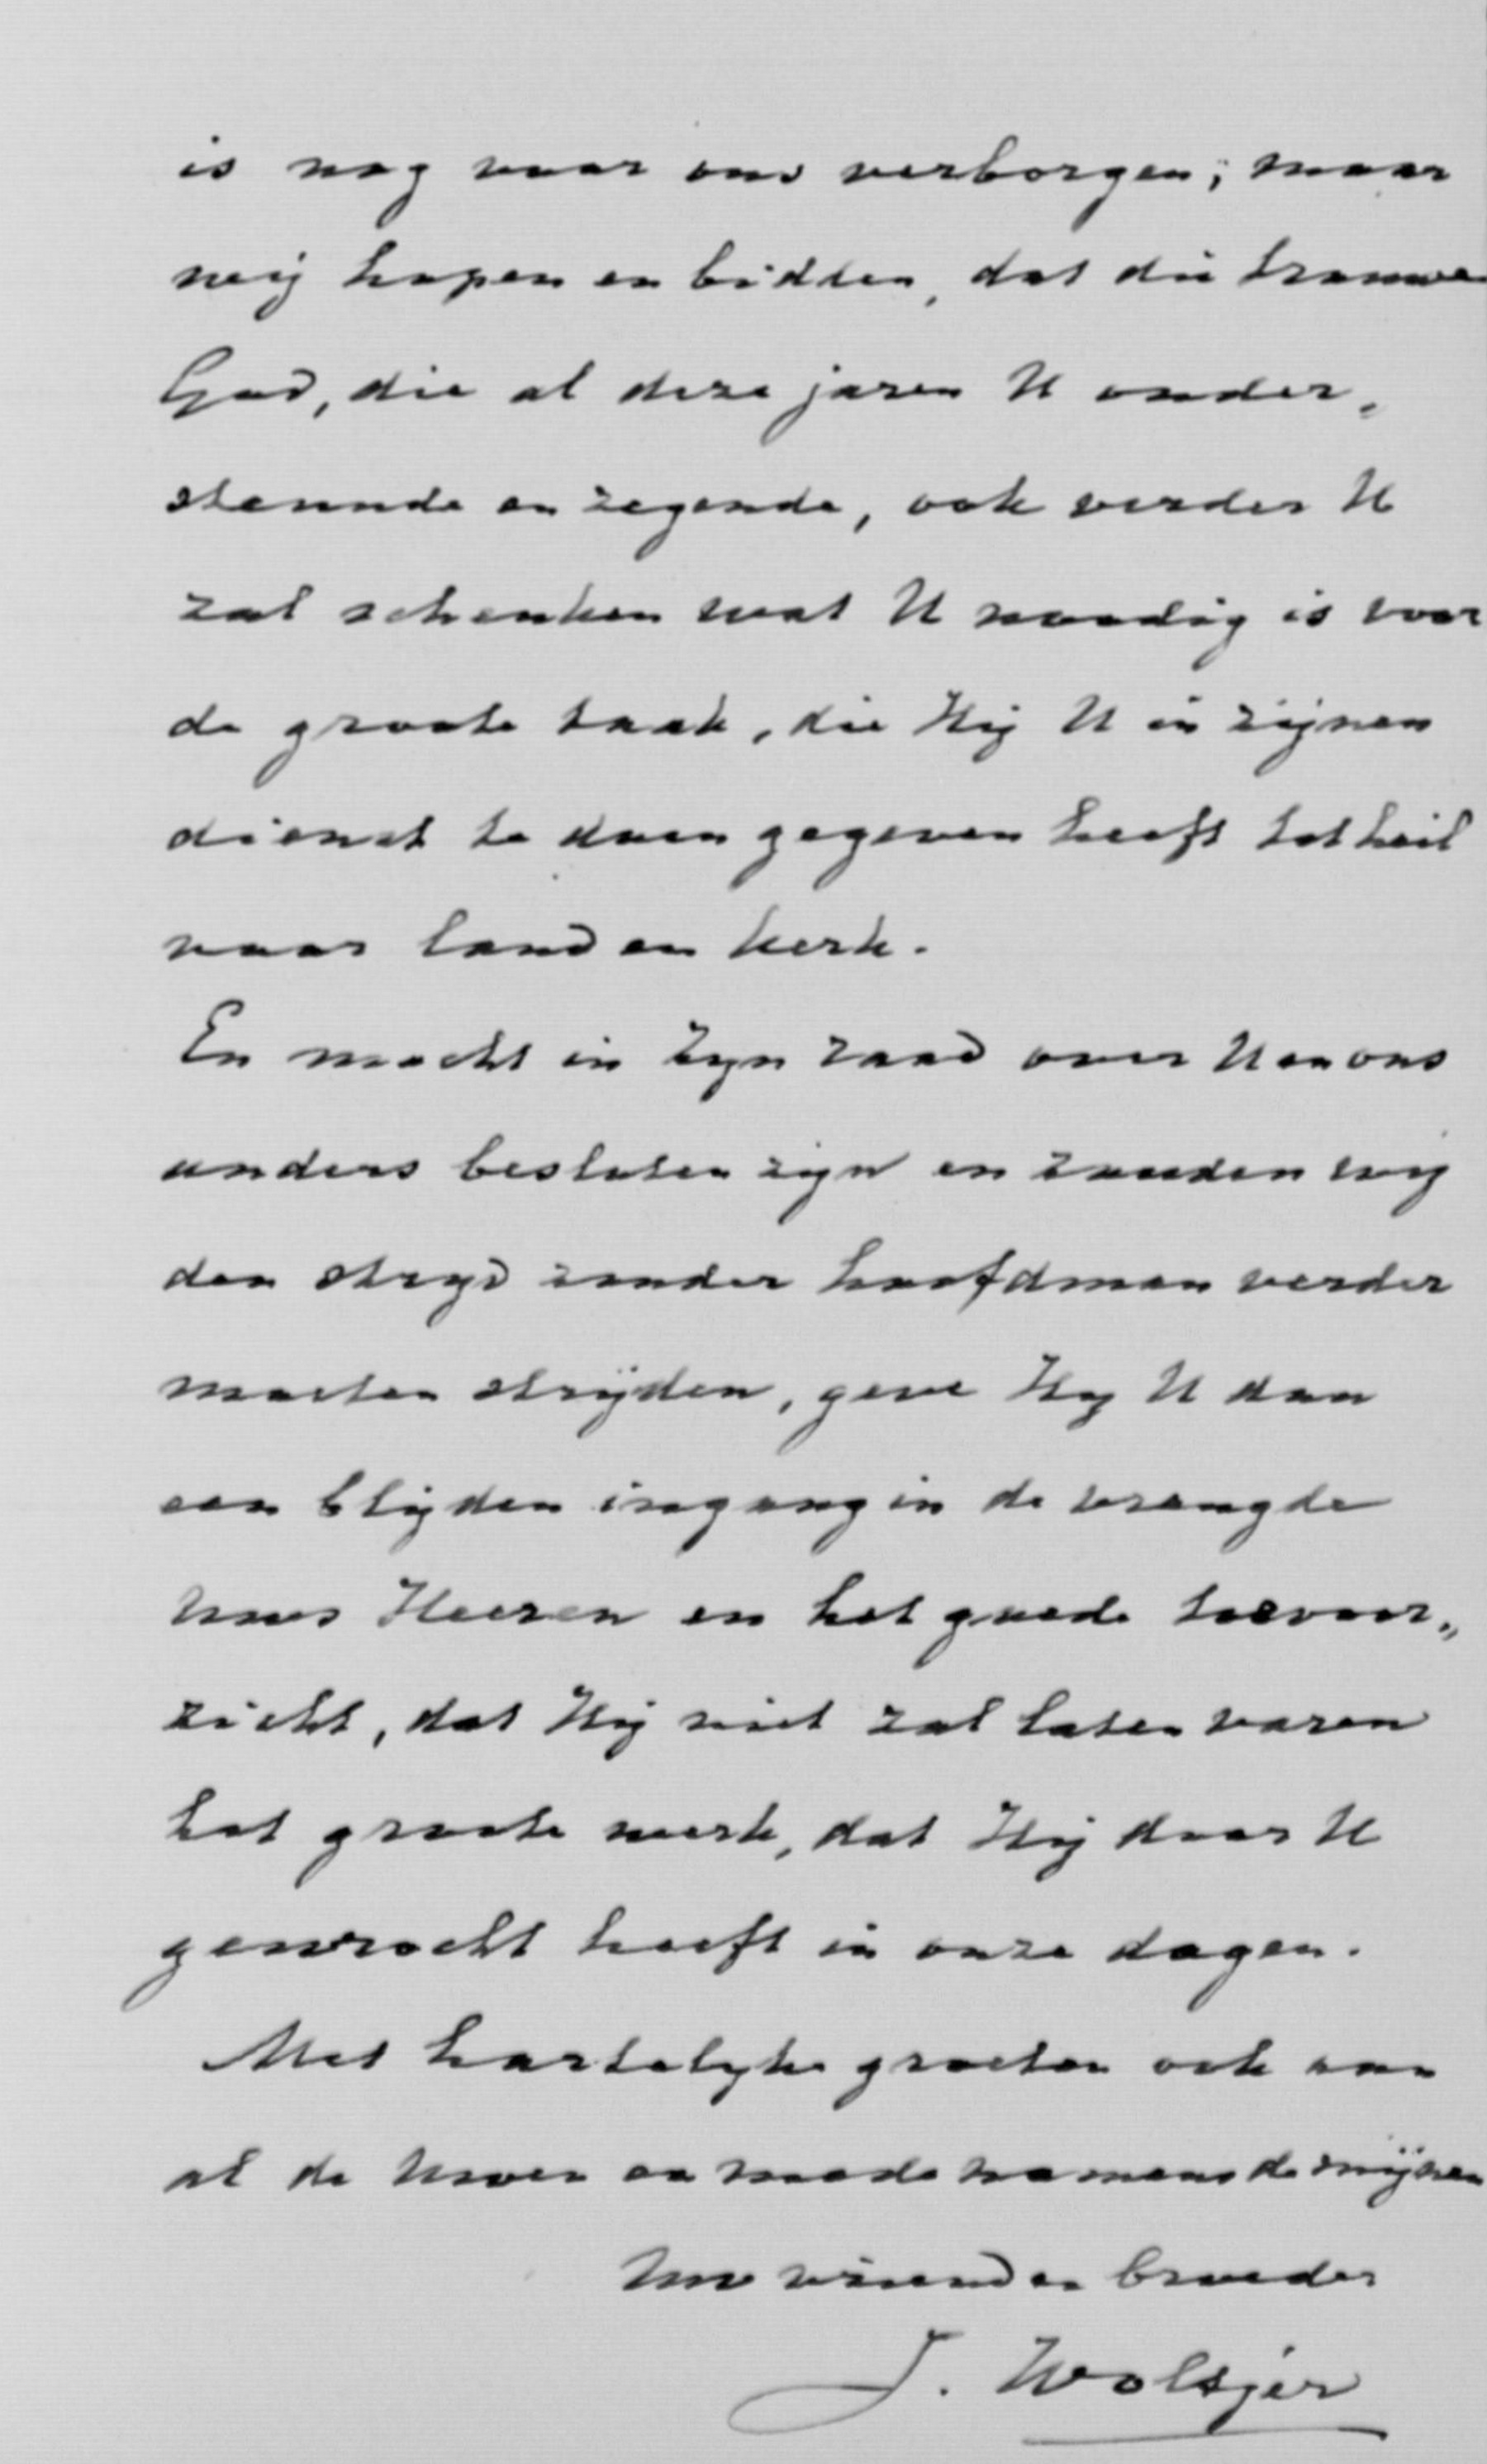 is nog voor ons verborgen; maar
wij hopen en bidden, dat die trouwe
God, die al deze jaren U onder„
steunde en zegende, ook verder U
zal schenken wat U noodig is voor
de groote taak, die Hij U in zijnen
dienst te doen gegeven heeft tot heil
voor land en kerk.
En mocht in zyn raad over U en ons
anders besloten zijn en zouden wij
den strijd zonder hoofdman verder
moeten strijden, geve Hij U dan
een blijden ingang in de vreugde
Uws Heeren en het goede toevoor„
zicht, dat Hij niet zal laten varen
het groote werk, dat Hij door U
gewrocht heeft in onze dagen.
Met hartelyke groeten ook aan
al de Uwen en mede namens de mijnen
Uw vriend en broeder
J. Woltjer